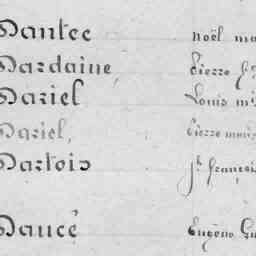 Dantec noël ma
Dardaine, Pierre J
Dariel Louis m
Dariel, Pierre mari
Dartois Jh françoi
Daucé Eugène Gu